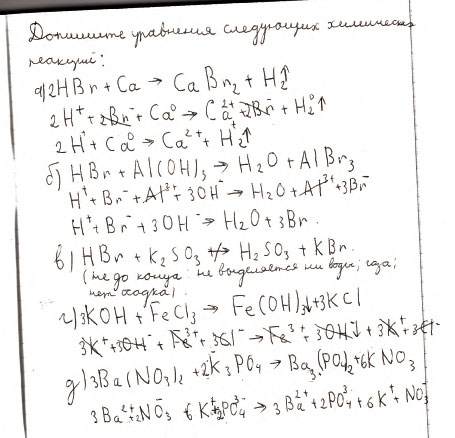 Допишите уравнения следующих химических
реакций:
а) 2HBr + Ca → CaBr₂ + H₂↑
2H⁺ + 2Br⁻ + Ca⁰ → Ca²⁺ + 2Br⁻ + H₂⁰↑
2H⁺ + Ca⁰ → Ca²⁺ + H₂↑
б) HBr + Al(OH)₃ → H₂O + AlBr₃
H⁺ + Br⁻ + Al³⁺ + 3OH⁻ → H₂O + Al³⁺ + 3Br⁻
H⁺ + Br⁻ + 3OH⁻ → H₂O + 3Br.
в) HBr + K₂SO₃ ↛ H₂SO₃ + KBr.
(не до конца: не выделяется ни воды, газа,
нет осадка).
г) 3KOH + FeCl₃ → Fe(OH)₃↓ + 3KCl
3K⁺ + 3OH⁻ + Fe³⁺ + 3Cl⁻ → Fe³⁺ + 3OH↓ + 3K⁺ + 3Cl⁻
д) 3Ba(NO₃)₂ + 2K₃PO₄ → Ba₃(PO₄)₂ + 6KNO₃
3Ba²⁺ + 2NO₃⁻ 6K⁺ + 2PO₄³⁻ → 3Ba²⁺ + 2PO₄³⁻ + 6K⁺ + NO₃⁻